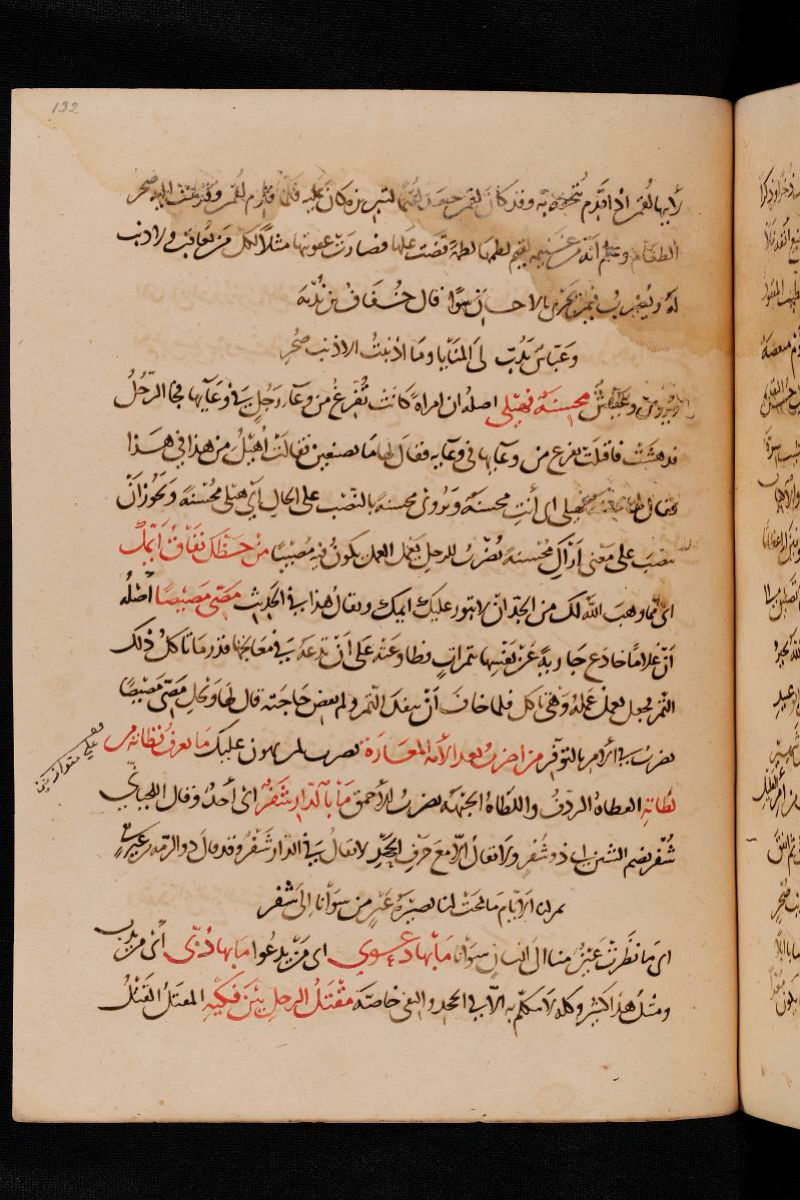 132
لأبيها لقمن اذا قدم تتحفه به وقد كان لقمن فلما قدم لقمن وقدمت اليه صحر
الطعام وعلم انه من غنيمة لقيم لطمها لطمة قضت عليها فصارت عقوبتها مثلا لكل من يعاقب ولا ذنب
له ويضرب لمن يجزى بالاحسان سوءا قال خفاف بن ندبة
وعباس يدب لي المنايا وما اذنبت الا ذنب صحر
محسنة فهيلي اصله ان امراة كانت تفرغ من وعاء رجل في وعائها فجا الرجل
فدهشت فاقبلت تفرغ من وعائها في وعايه فقال لها ما تصنعين فقالت اهيل من هذا في هذا
فقال لها محسنة فهيلي اي أنت محسنة ويروى محسنة بالنصب على الحال اي هيلي محسنة ويجوز ان
ينصب على معنى أراك محسنة يضرب للرجل يعمل العمل يكون فيه مصيبا من حظك نفاق أيمك
اي مما وهب الله لك من الجد ان لا تبور عليك ايمك ويقال هذا في الحديث مصي مصيصا أصله
أن غلاما خادع جارية عن نفسها بتمرات فطاوعته على أن تدعه في معالجتها قدر ما تاكل ذلك
التمر فجعل يعمل عمله وهي تاكل فلما خاف أن ينفد التمر ولم يقض حاجته قال لها ويحك مصي مصيصا
يضرب في الامر بالتوفر من اضرب بعد الأمة المعارة يضرب لمن يهون عليك ما يعرف قطاته من
لطاته القطاة الردف واللطاة الجبهة يضرب للأحمق ما بالدار شفر اي أحد وقال اللحياني
شفر بضم الشين اي ذو شفر ولا يقال الا مع حرف الجحد لا يقال في الدار شفر وقد قال ذو الرمة
تمر لنا الايام ما لمحت لنا بصيرة عين من سوانا الى شفر
اي ما نظرت عين منا الى انسان سوانا ما بها دعوي اي من يدعوا ما بها دبي أي من يدب
ومثل هذا كثير وكله لا يتكلم به الا في الجحد والنفي خاصة مقتل الرجل بين فكيه المقتل القتل